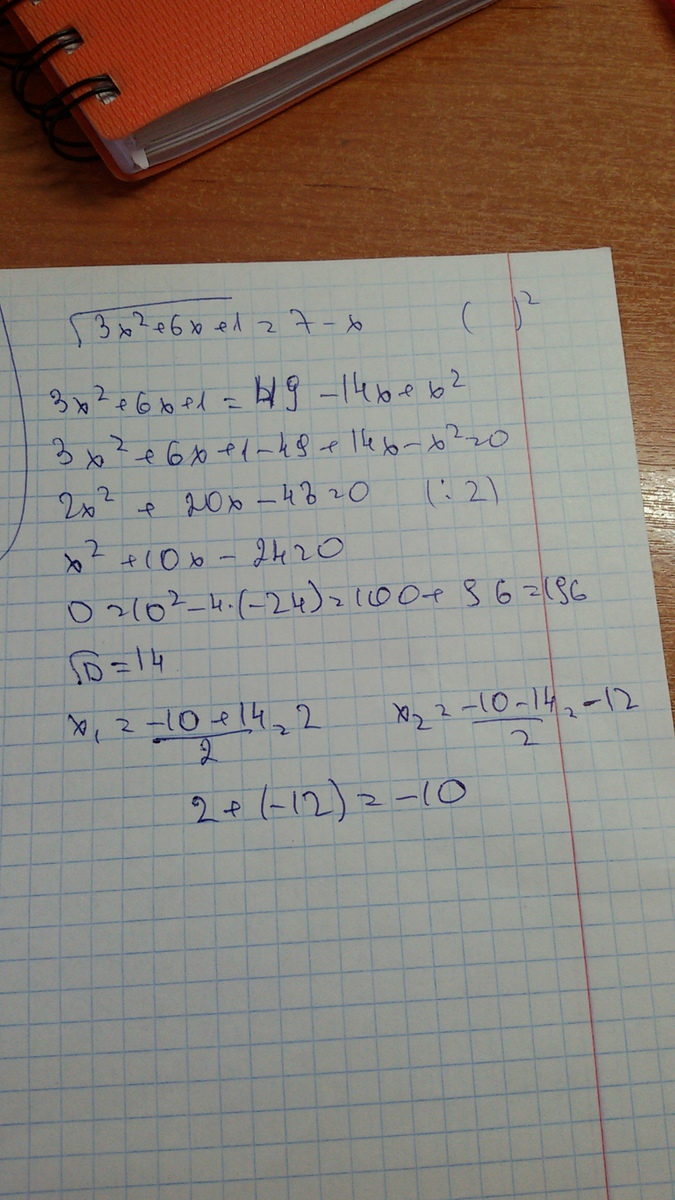 √3x²+6x+1 = 7-x ( )²
3x²+6x+1 = 49-14x+x²
3x²+6x+1-49+14x-x²=0
2x² + 20x-48=0 (:2)
x²+10x-24=0
D=10²-4·(-24)=100+96=196
√D=14
x₁ = (-10+14)/2 = 2 x₂ = (-10-14)/2 = -12
2+(-12)=-10